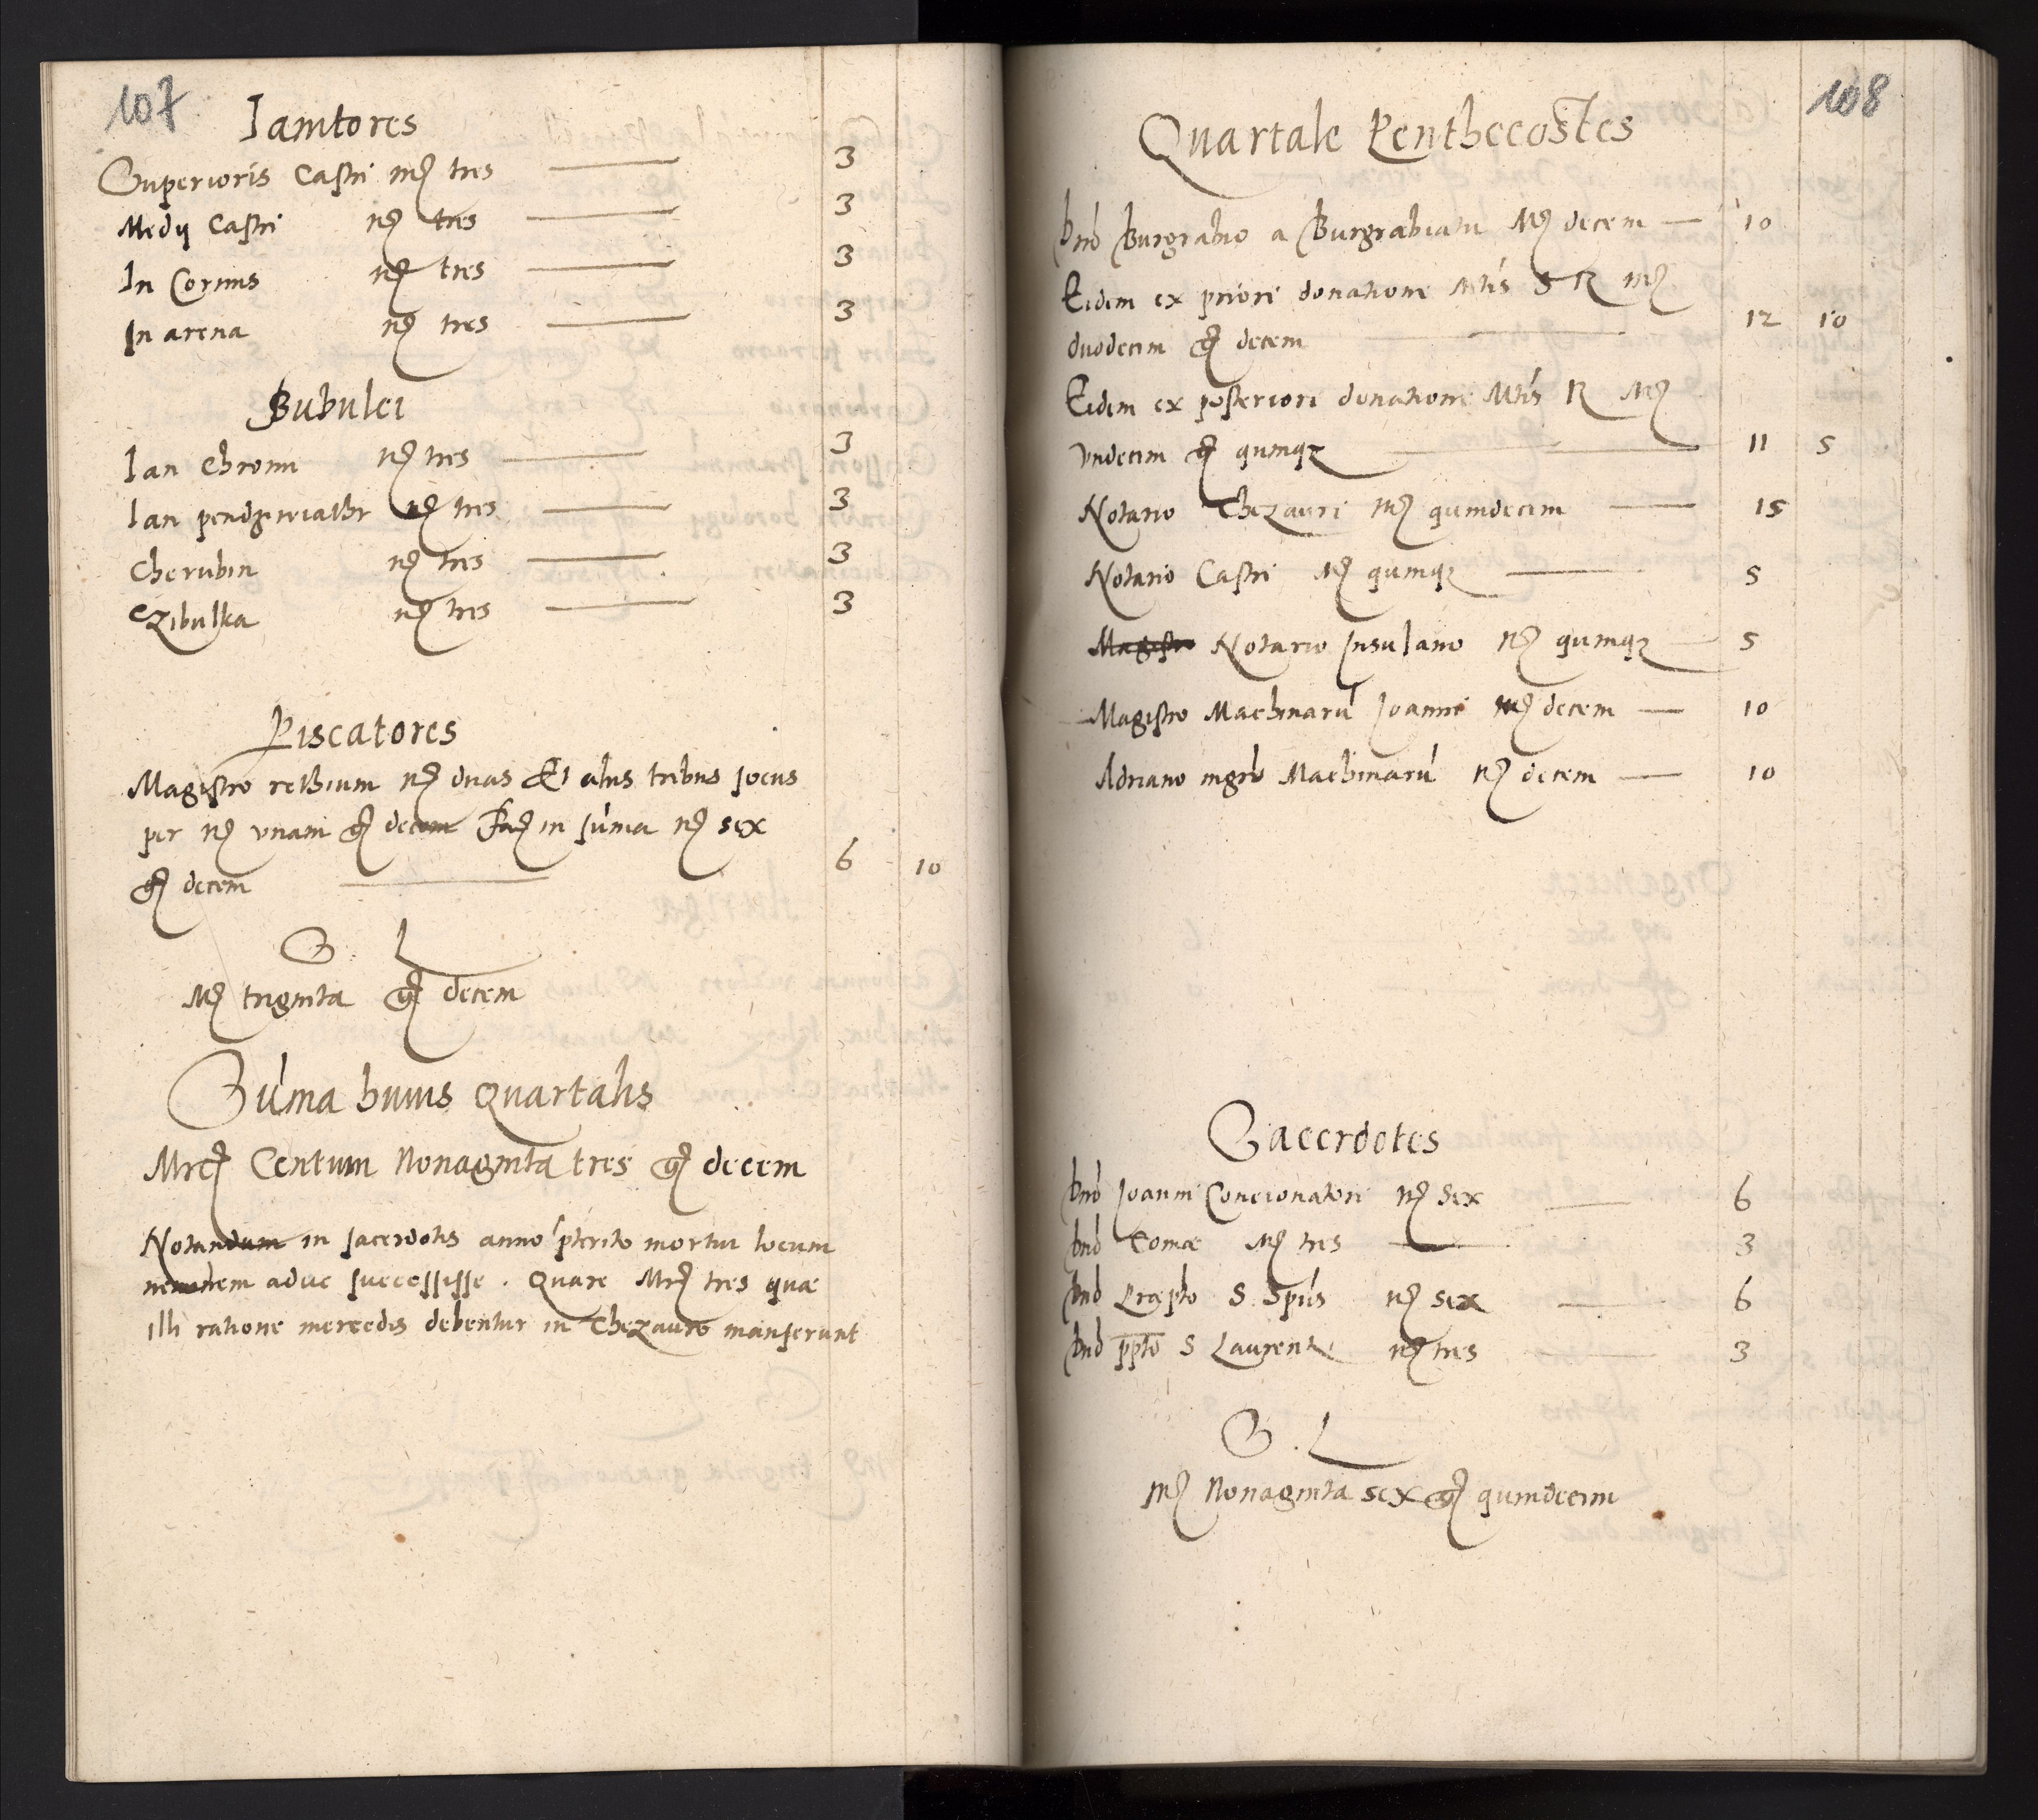 107
Ianitores
Superioris Castri mς tres 3
Medij Castri mς tres 3
In Cornus mς tres 3
In arena mς tres 3
Bubulci
Ian Chromi mς tres 3
Ian mς tres 3
Cherubin mς tres 3
Czibulka mς tres 3
Piscatores
Magistro rethium mς duas Et alijs tribus socijs
per mς unam gς decem Facς in sūma mς sex
gς decem 6 10
S. L
Mς triginta gς decem
Sūma huius Quartalis
Mrcς Centum Nonaginta tres gς decem
Notandum in sacerdotis anno pterito mortui locum
neminem aduc successisse. Quare Mrς tres quæ
illi ratione mercedis debentur in Thezauro manserunt
108
Quartale Penthecostes
Dno Burgrabio a Burgrabiatu Mς decem 10
Eidem ex priori donatione Mtis S R mς
duodecim gς decem 12 10
Eidem ex posteriori donatione Mtis R Mς
undecim gς quinqз 11 5
Notario Thezauri mς quindecim 15
Notario Castri Mς quinqз 5
Magistro Notario Insulano mς quinqз 5
Magistro Machinarū Joanni mς decem 10
Adriano mgrō Machinarū mς decem 10
Sacerdotes
Dno Joanni Concionatori mς sex 6
Dno Tomæ Mς tres 3
Dno Præpto S. Spūs mς sex 6
Dno ppto S Laurenti mς tres 3
S. L
Mς Nonaginta sex gς quindecim